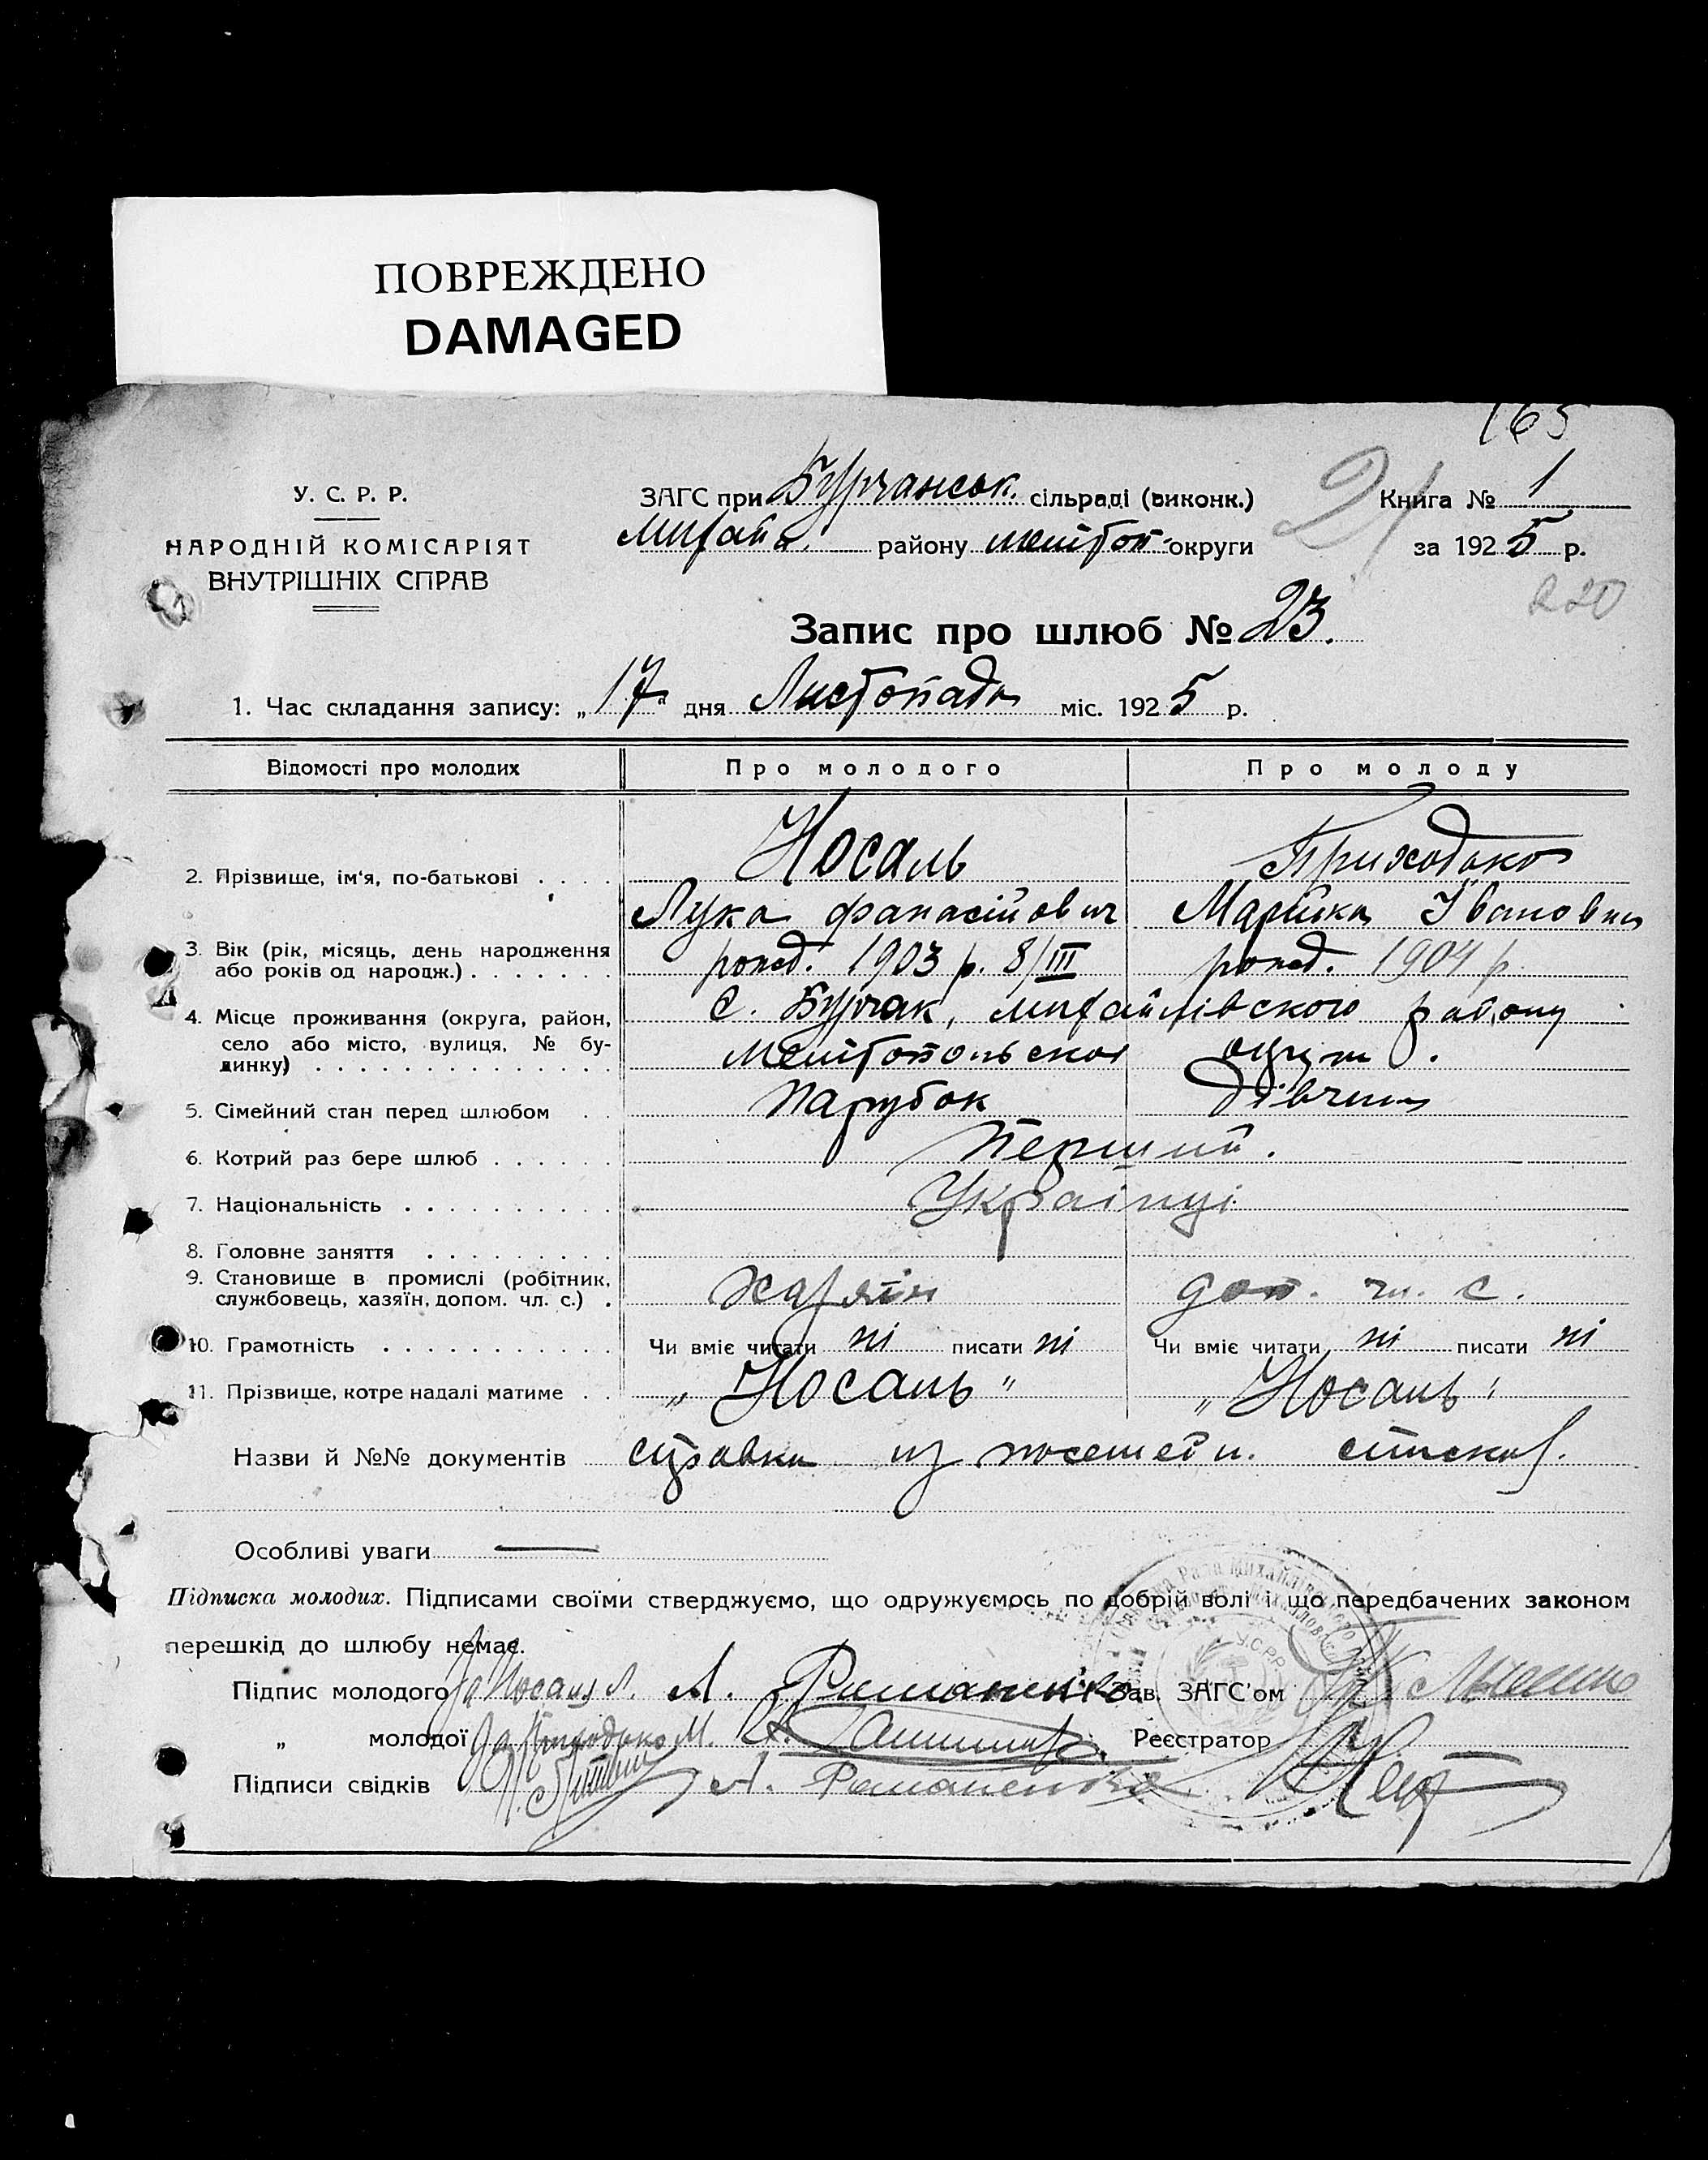 ПОВРЕЖДЕНО
DAMAGED
165
У. С. Р. Р.
НАРОДНІЙ КОМІСАРІЯТ
ВНУТРІШНІХ СПРАВ
ЗАГС при Бурчанськ. сільраді (виконк.)
Михайл. району меліт́оп. округи
Книга № 1
за 1925 р.
21
220
Запис про шлюб № 23.
1. Час складання запису: „17“ дня Листопада міс. 1925 р.
Відомості про молодих Про молодого Про молоду
2. Прізвище, ім'я, по-батькові . . . . Носаль Приходько
Лука Фанасійович Марійка Івановна
3. Вік (рік, місяць, день народження або років од народж.) . . . . . . . рожд. 1903 р. 8/III рожд. 1904 р.
4. Місце проживання (округа, район, село або місто, вулиця, № будинку) . . . . . . . . . . . . . . с. Бурчак, михайлівского району
Мелітопольскоі округи.
5. Сімейний стан перед шлюбом . . Парубок Дівчина
6. Котрий раз бере шлюб . . . . . . Перший.
7. Національність . . . . . . . . . . Українці
8. Головне заняття . . . . . . . . .
9. Становище в промислі (робітник, службовець, хазяїн, допом. чл. с.) . хазяїн доп. чл. с.
10. Грамотність . . . . . . . . . . . Чи вміє читати ні писати ні Чи вміє читати ні писати ні
11. Прізвище, котре надалі матиме . . „Носаль“ „Носаль“
Назви й №№ документів справка из посемейн. списков.
Особливі уваги —
Підписка молодих. Підписами своїми стверджуємо, що одружуємось по добрій волі і що передбачених законом
перешкід до шлюбу немає.
Підпис молодого За Носаль Л. Л. Романенко Зав. ЗАГС'ом
„ молодої За Приходько М. Реєстратор
Підписи свідків Л. Романенко
У.С.Р.Р.